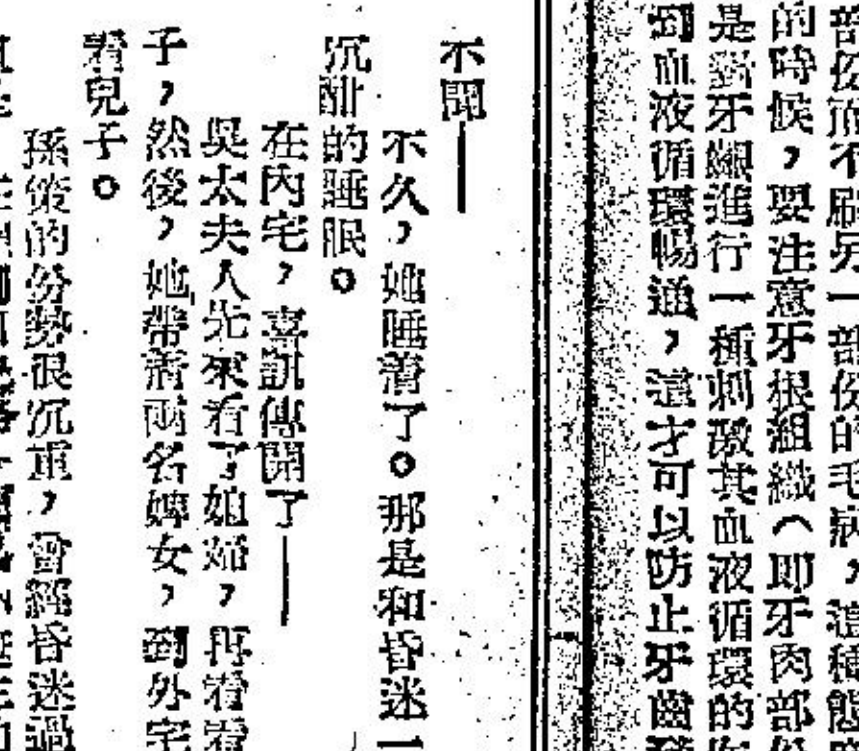 部份而不刷另一部份的毛病，這種態
的時候，要注意牙根組織（即牙肉部份
是對牙齦進行一種刺激其血液循環的
到血液循環暢通，這才可以防止牙齒
不聞——
不久，她睡着了。那是和昏迷一
沉酣的睡眠。
在內宅，喜訊傳開了——
吳太夫人先來看了媳婦，再看看
子，然後，她帶着兩名婢女，到外宅
看兒子。
孫策的份勢很沉重，曾經昏迷過